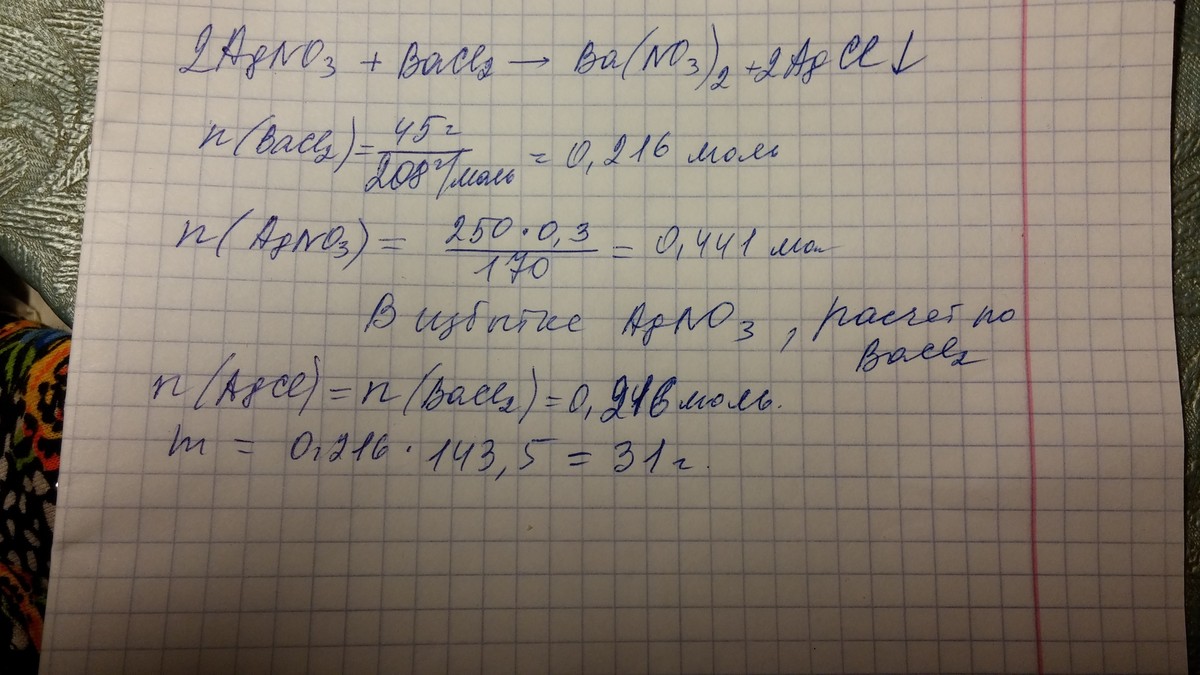 2AgNO₃ + BaCl₂ → Ba(NO₃)₂ + 2AgCl↓
n(BaCl₂) = 45г / 208 г/моль = 0,216 моль
n(AgNO₃) = 250·0,3 / 170 = 0,441 мол
В избытке AgNO₃, расчет по
BaCl₂
n(AgCl) = n(BaCl₂) = 0,216 моль.
m = 0,216 · 143,5 = 31 г.